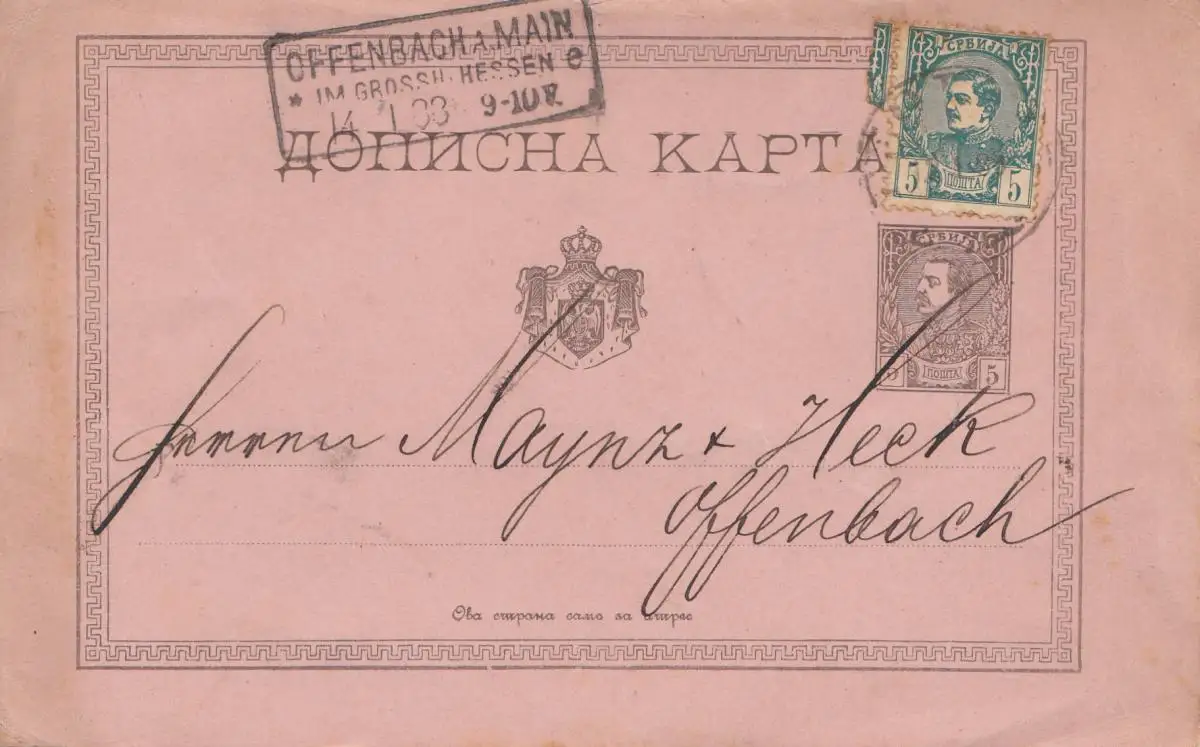 OFFENBACH A. MAIN
* IM GROSSH. HESSEN e
14 1 83 9-10 V.
ДОПИСНА КАРТА
СРБИЈА
5 ПОШТА 5
СРБИЈА
5 ПОШТА 5
Herren Maynz & Heck
Offenbach
Ова страна само за адрес